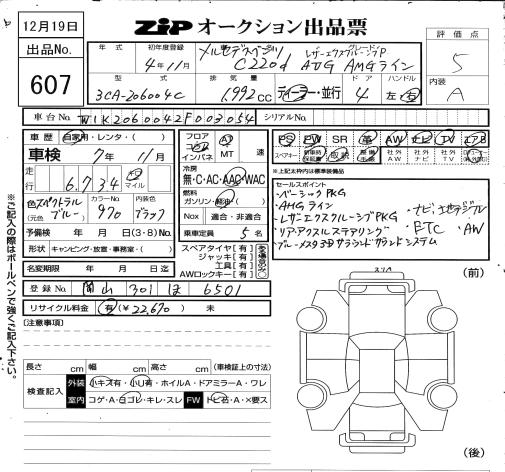 12月19日
ZIP オークション出品票
出品No.
607
年式
初年度登録
4年11月
車名
メルセデスベンツ
C220d
グレード
レザーエクスクルーシブP
AVG AMGライン
型式
3CA-206004C
排気量
1,992cc
ディーラー・並行
ドア
4
ハンドル
左・右
評価点
5
内装
A
車台No. W1K2060042F003054
シリアルNo.
車歴 自家用・レンタ・( )
車検 7年 11月
走行 6,734 km マイル
色 スペクトラルブルー
(元色 )
カラーNo. 970
内装色 ブラック
予備検 年 月 日(3・8)No.
形状 キャンピング・放置・事務室・( )
名変期限 年 月 日迄
フロア コラム インパネ AT MT 速
冷房 無・C・AC・AAC・WAC
燃料 ガソリン・軽油・( )
Nox 適合・非適合
乗車定員 5名
スペアタイヤ【有】
ジャッキ【有】
工具【有】
AWロックキー【有】
ある場合のみ○
PS PW SR 革 AW ナビ TV エアB
スペアキー 新車時保証書 取説 整備手帳 社外AW 社外ナビ 社外TV
※上記太枠内は装備品
セールスポイント
・ベーシックPKG
・AMGライン
・レザーエクスクルーシブPKG
・リアアクスルステアリング
・ブルメスター3Dサラウンドサウンドシステム
・ナビ・地デジTV
・ETC ・AW
登録No. 岡山 301 ほ 6501
リサイクル料金 有(¥22,670) 未
【注意事項】
長さ cm 幅 cm 高さ cm (車検証上の寸法)
検査記入
外装 小キズ有・小U有・ホイルA・ドアミラーA・ワレ
室内 コゲ・A・ヨゴレ・キレ・スレ FW トビ石・A・×要ス
(前)
(後)
※ご記入の際はボールペンで強くご記入下さい。